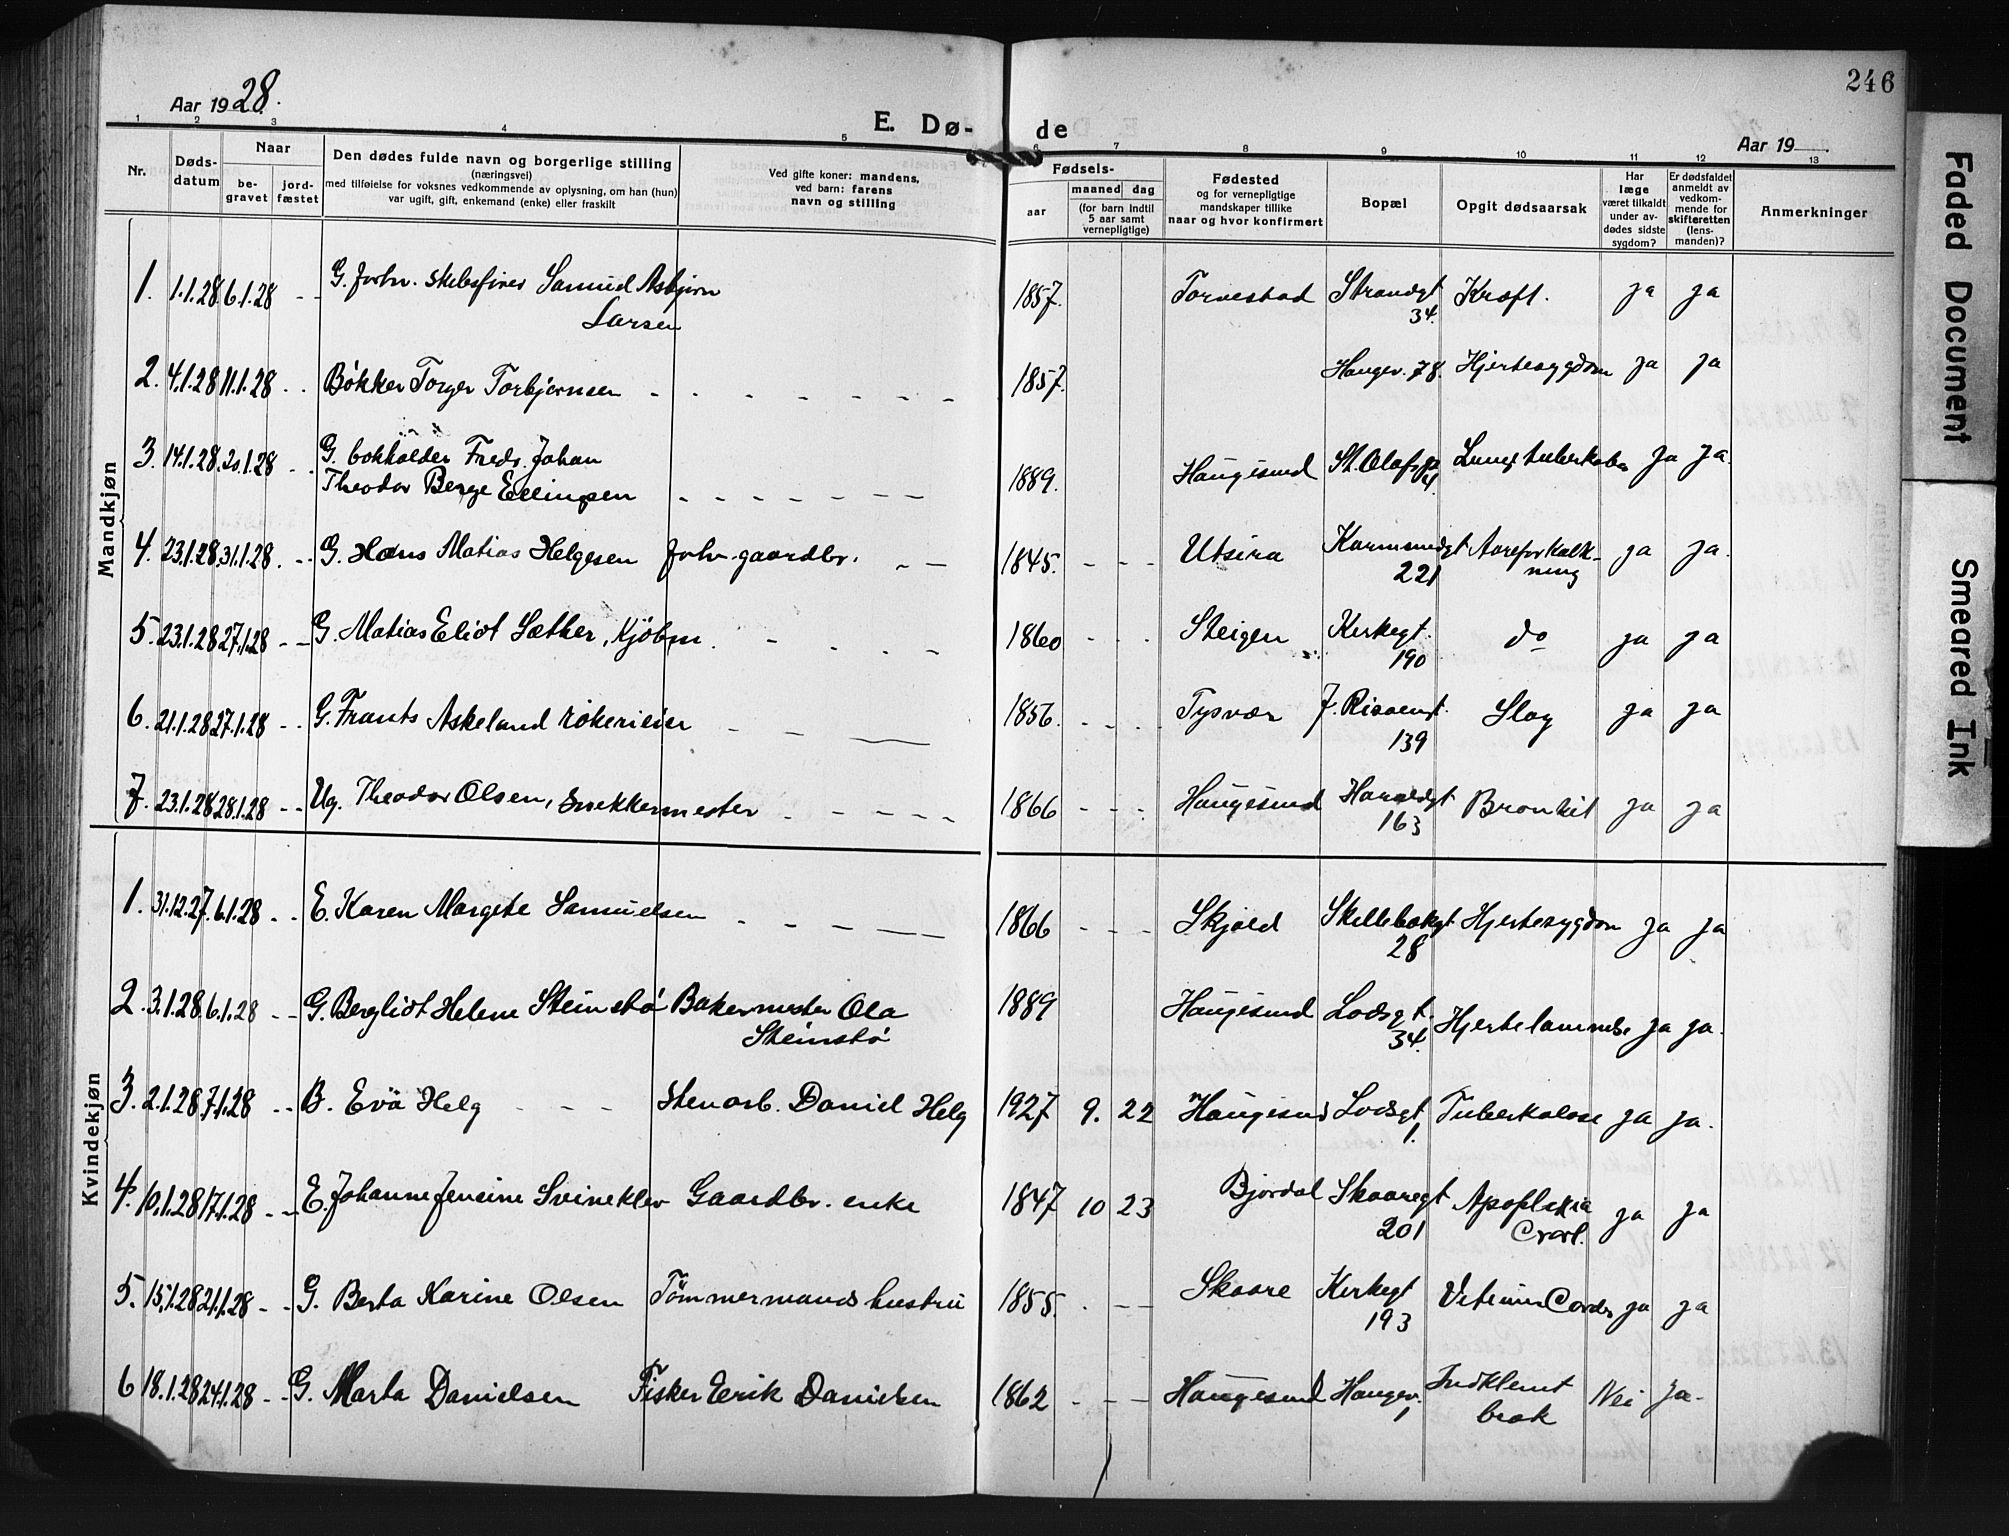 246
Aar 1928.
E. Dø-
de
Aar 19
1 2 3 4 5 6 7 8 9 10 11 12 13
Nr.
Døds-
datum
Naar
be-
gravet
jord-
fæstet
Den dødes fulde navn og borgerlige stilling
(næringsvei)
med tilføielse for voksnes vedkommende av oplysning, om han (hun)
var ugift, gift, enkemand (enke) eller fraskilt
Ved gifte koner: mandens,
ved barn: farens
navn og stilling
Fødsels-
aar
maaned dag
(for barn indtil
5 aar samt
vernepligtige)
Fødested
og for vernepligtige
mandskaper tillike
naar og hvor konfirmert
Bopæl
Opgit dødsaarsak
Har
læge
været tilkaldt
under av-
dødes sidste
sygdom?
Er dødsfaldet
anmeldt av
vedkom-
mende for
skifteretten
(lens-
manden)?
Anmerkninger
Mandkjøn
1. 1.1.28 6.1.28 - - G. forhv. skibsfører Samuel Asbjørn 1857. Torvestad Strandgt Kræft. ja ja
Larsen 34.
2. 4.1.28 11.1.28 - - Bøkker Torger Torbjørnsen - - - - - - 1857. Haugev. 78. Hjertesygdom ja ja
3. 14.1.28. 20.1.28 - - G. bokholder Fredr. Johan
Theodor Berge Ellingsen - - - - - - 1889. Haugesund St. Olafsgt Lungetuberkulos ja ja.
4. 23.1.28. 31.1.28 - - G. Hans Matias Helgesen forhv. gaardbr. - - 1845. - - - Utsira Karmsundgt Aareforkalk- ja ja.
221 ning
5. 23.1.28 27.1.28 - - G. Matias Eliot Sæther, Kjøbm. - - - - 1860 - - - Steigen Kirkegt. do ja ja
190
6. 21.1.28 27.1.28 - - G. Frants Askeland røkerieier - - - 1856. - - - Tysvær J. Risøengt. Slag ja ja
139
7. 23.1.28 28.1.28 - - Ug. Theodor Olsen, snekkermester - - - - - 1866 - - - Haugesund Haraldgt Bronkit ja ja
163
Kvindekjøn
1. 31.12.27. 6.1.28 - - E. Karen Margete Samuelsen - - - - 1866 - - - Skjold Skillebekgt Hjertesygdom ja ja
28
2. 3.1.28. 6.1.28 - - G. Bergliot Helene Steinstø Bakermester Ola 1889 Haugesund Lodsgt. Hjertelammelse ja ja.
Steinstø 34.
3. 2.1.28 7.1.28 - - B. Eva Helg - - - Stenarb. Daniel Helg 1927 9. 22 Haugesund Lodsgt Tuberkulose ja ja.
1.
4. 10.1.28 17.1.28 - - E. Johanne Jensine Svineklev Gaardbr. enke 1847 10 23 Bjordal Skaaregt Apoplexia ja ja
201 Cerebr.
5. 15.1.28 21.1.28 - - G. Berta Karine Olsen Tømmermands hustru 1855. - - - Skaare Kirkegt Vitium Cordis ja ja
193
6 18.1.28 24.1.28 - - G. Marta Danielsen Fisker Eerik Danielsen 1862 - - - Haugesund Haugev. Indklemt Nei Ja.
1 brok
Faded Document
Smeared Ink